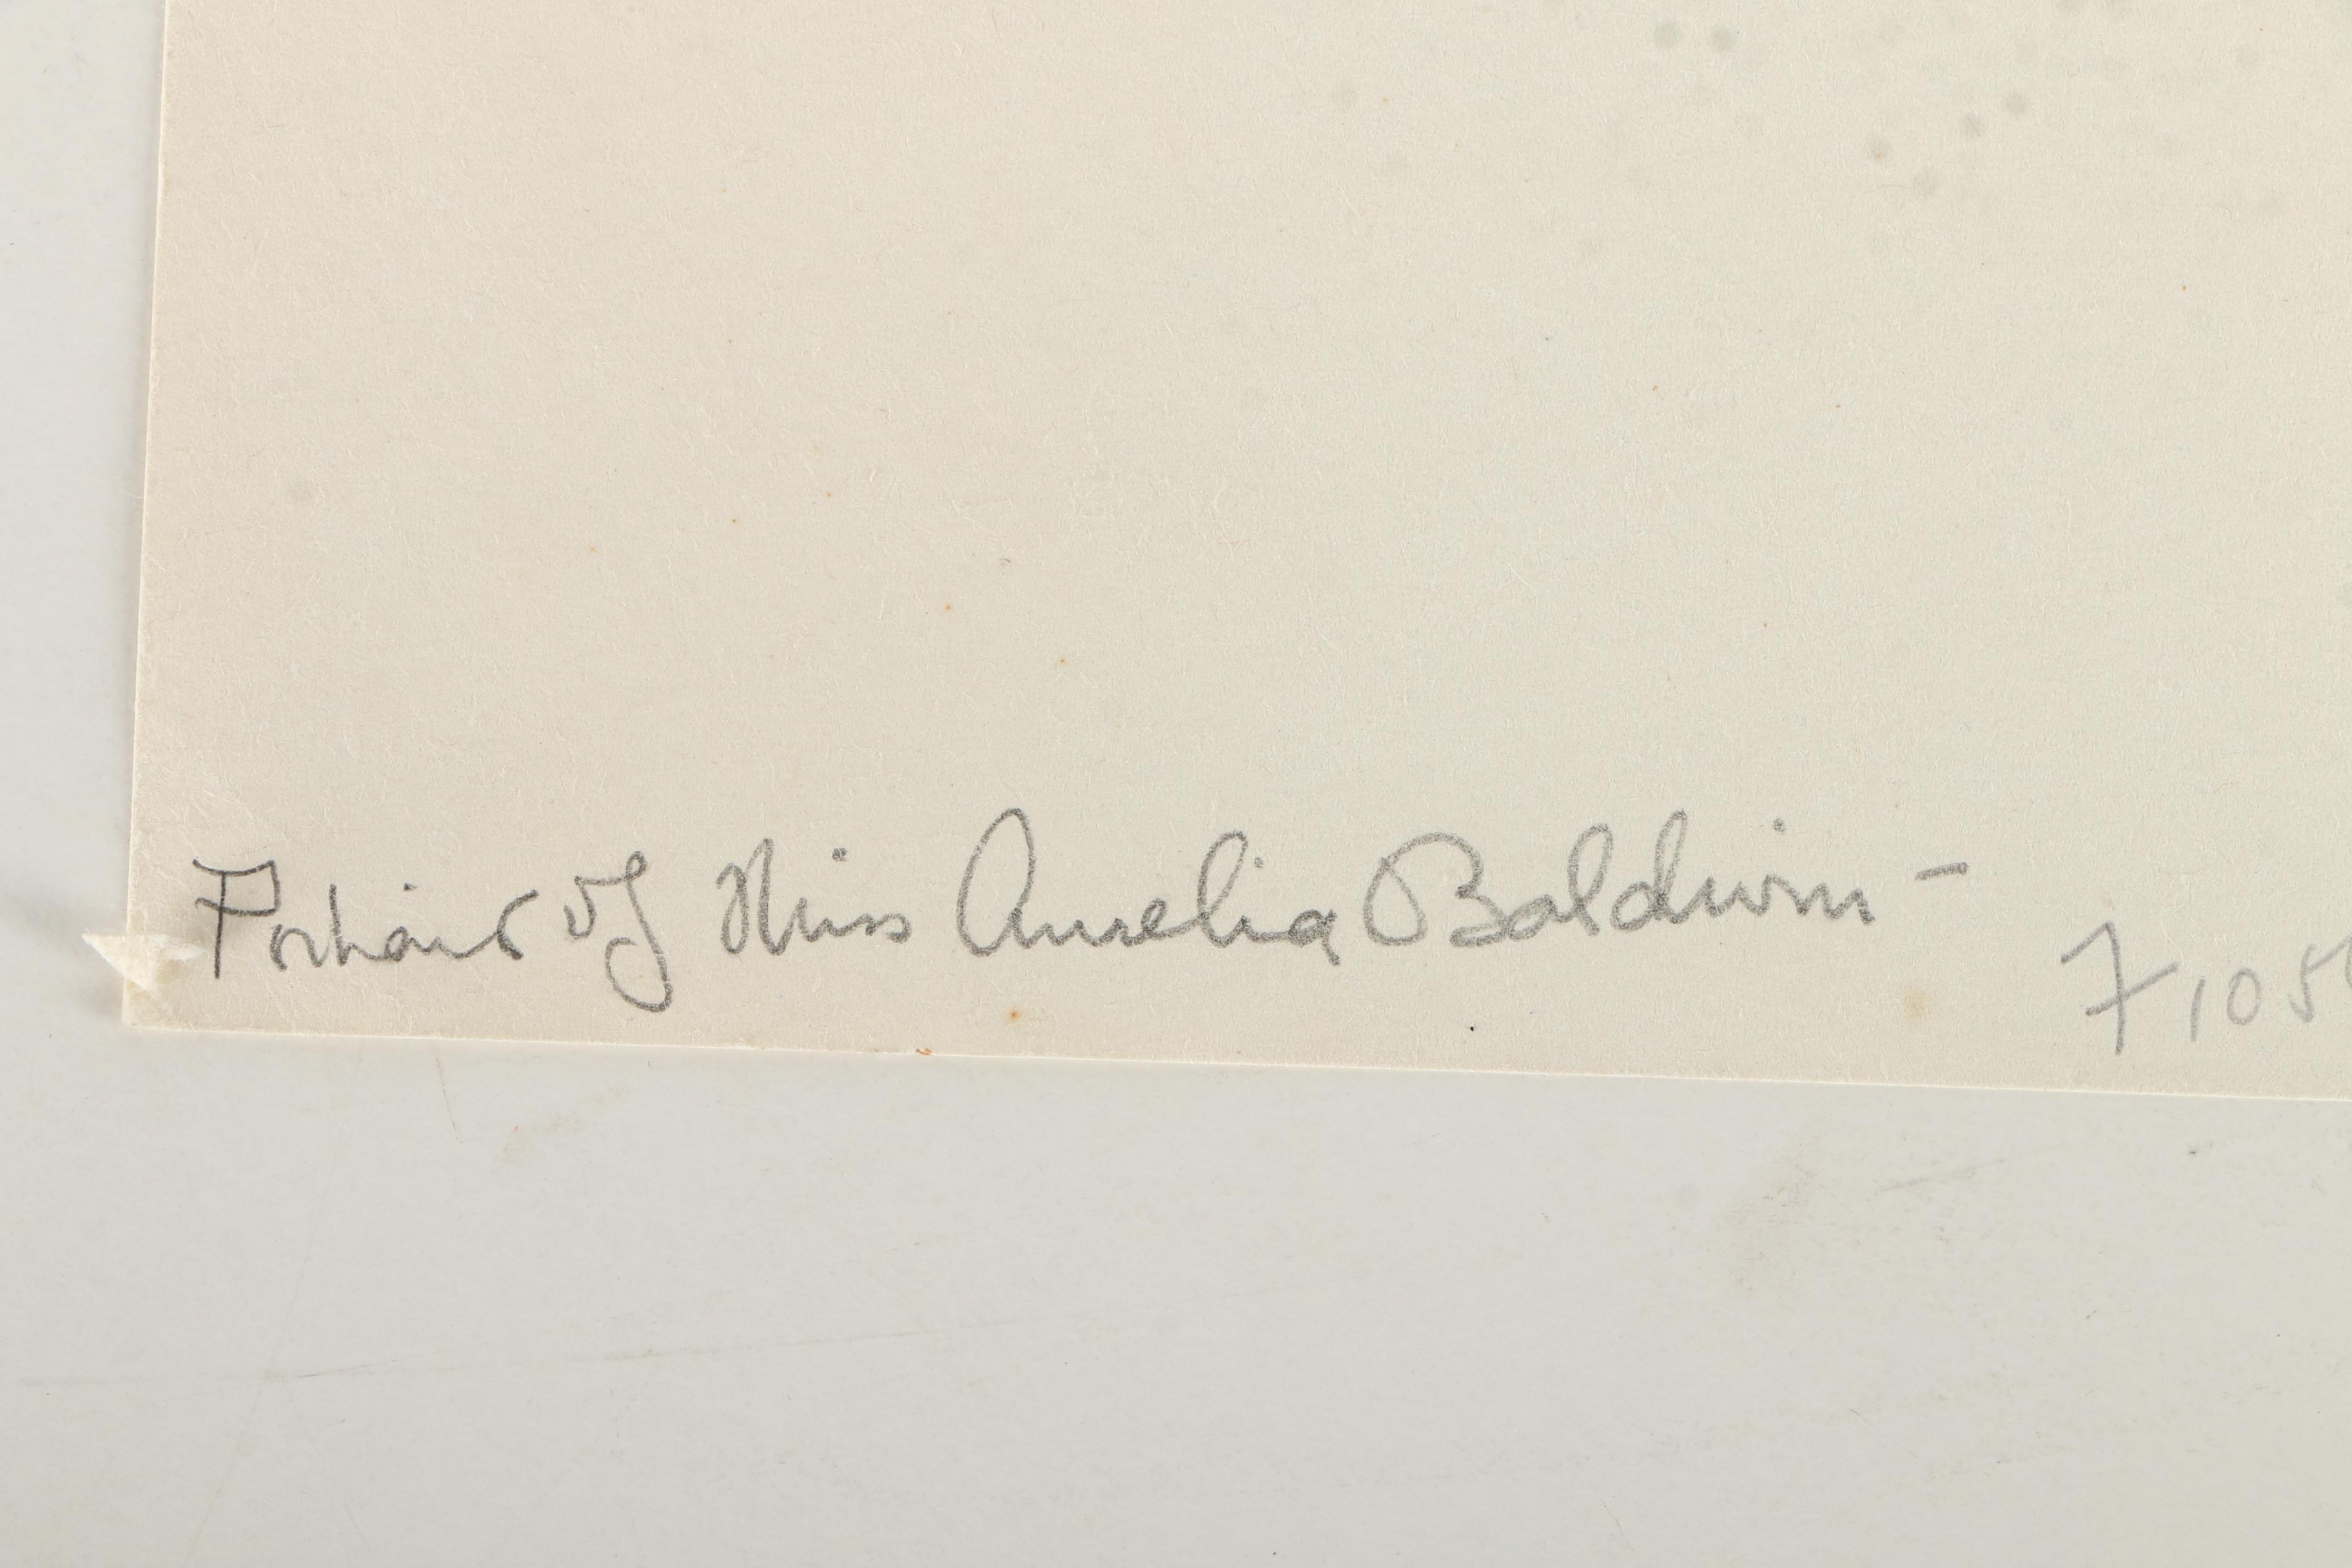 Portrait of Miss Aurelia Baldwin –
7105